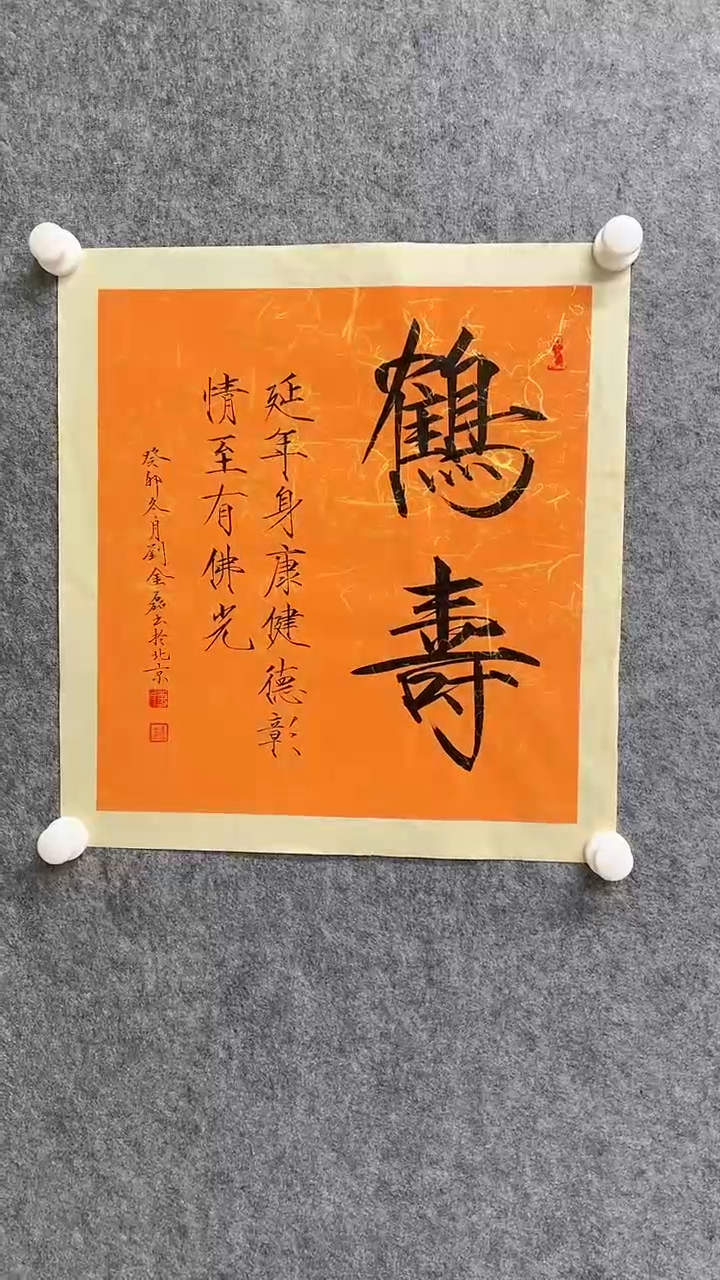 鶴壽
延年身康健德彰
情至有佛光
癸卯冬月劉金磊書於北京